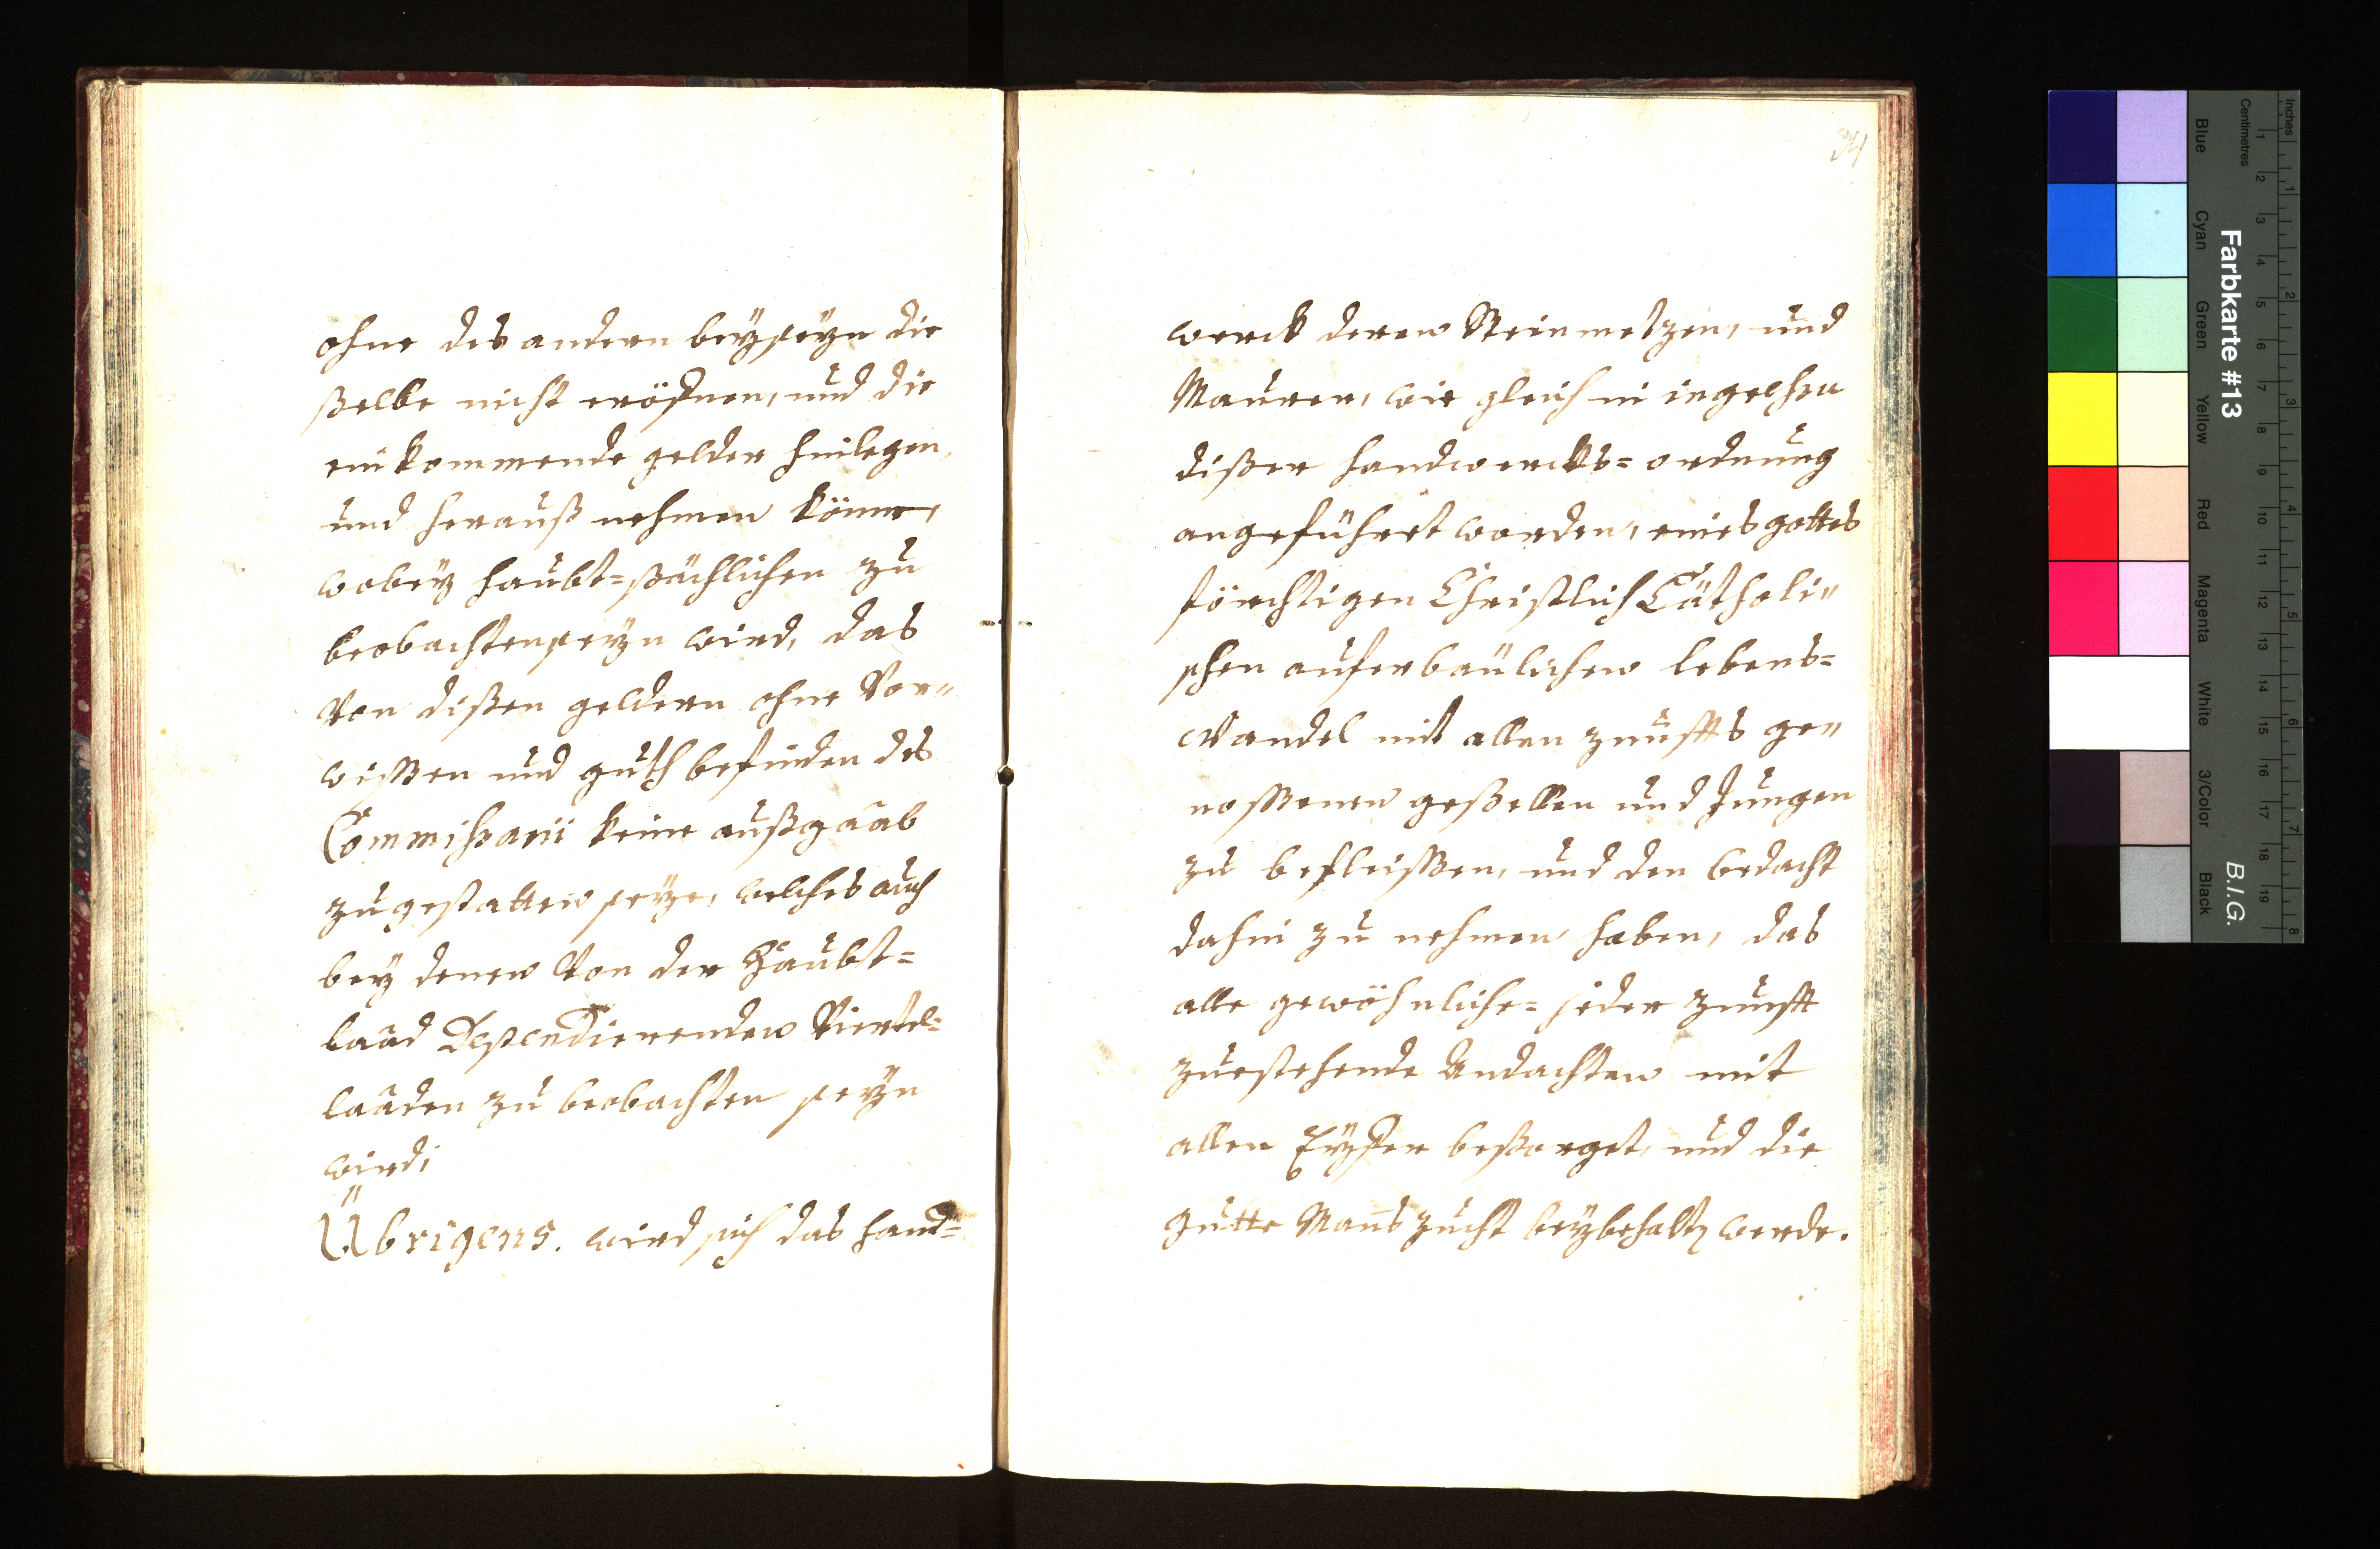 ohne des andern beyseyn die
ßelbe nicht eröfnen, und die
einkommende gelder hinlegen,
und herauß nehmen könne,
wobey haubt=sächlichen zu
beobachten seyn wird, das
von dißen geldern ohne Vor„
wissen und guth befinden des
Commissarii keine außgaab
zu gestatten seye, welches auch
bey denen von der Haubt=
laad Dependierenden Viertel=
laaden zu beobachten seyn
wird;
Übrigens. wird sich das hand=
34
werck deren Steinmetzen, und
Maurer, wie gleich in
dißer handwercks=ordnung
angeführet worden, eines gottes
förchtigen Christlich Catholi„
schen auferbäulichen lebens=
Wandel mit allen zunffts ge„
nossenen geßellen und Jungen
zu befleissen, und den bedacht
dahin zu nehmen haben, das
alle gewöhnliche= jeder zunfft
zuestehende Andachten mit
allen Eyffer beßorget, und die
gutte Mans zucht beybehalten werde.
Inches
Centimetres
Blue Cyan Green Yellow Red Magenta White 3/Color Black
Farbkarte #13
B.I.G.
1 2 3 4 5 6 7 8 9 10 11 12 13 14 15 16 17 18 19
1 2 3 4 5 6 7 8